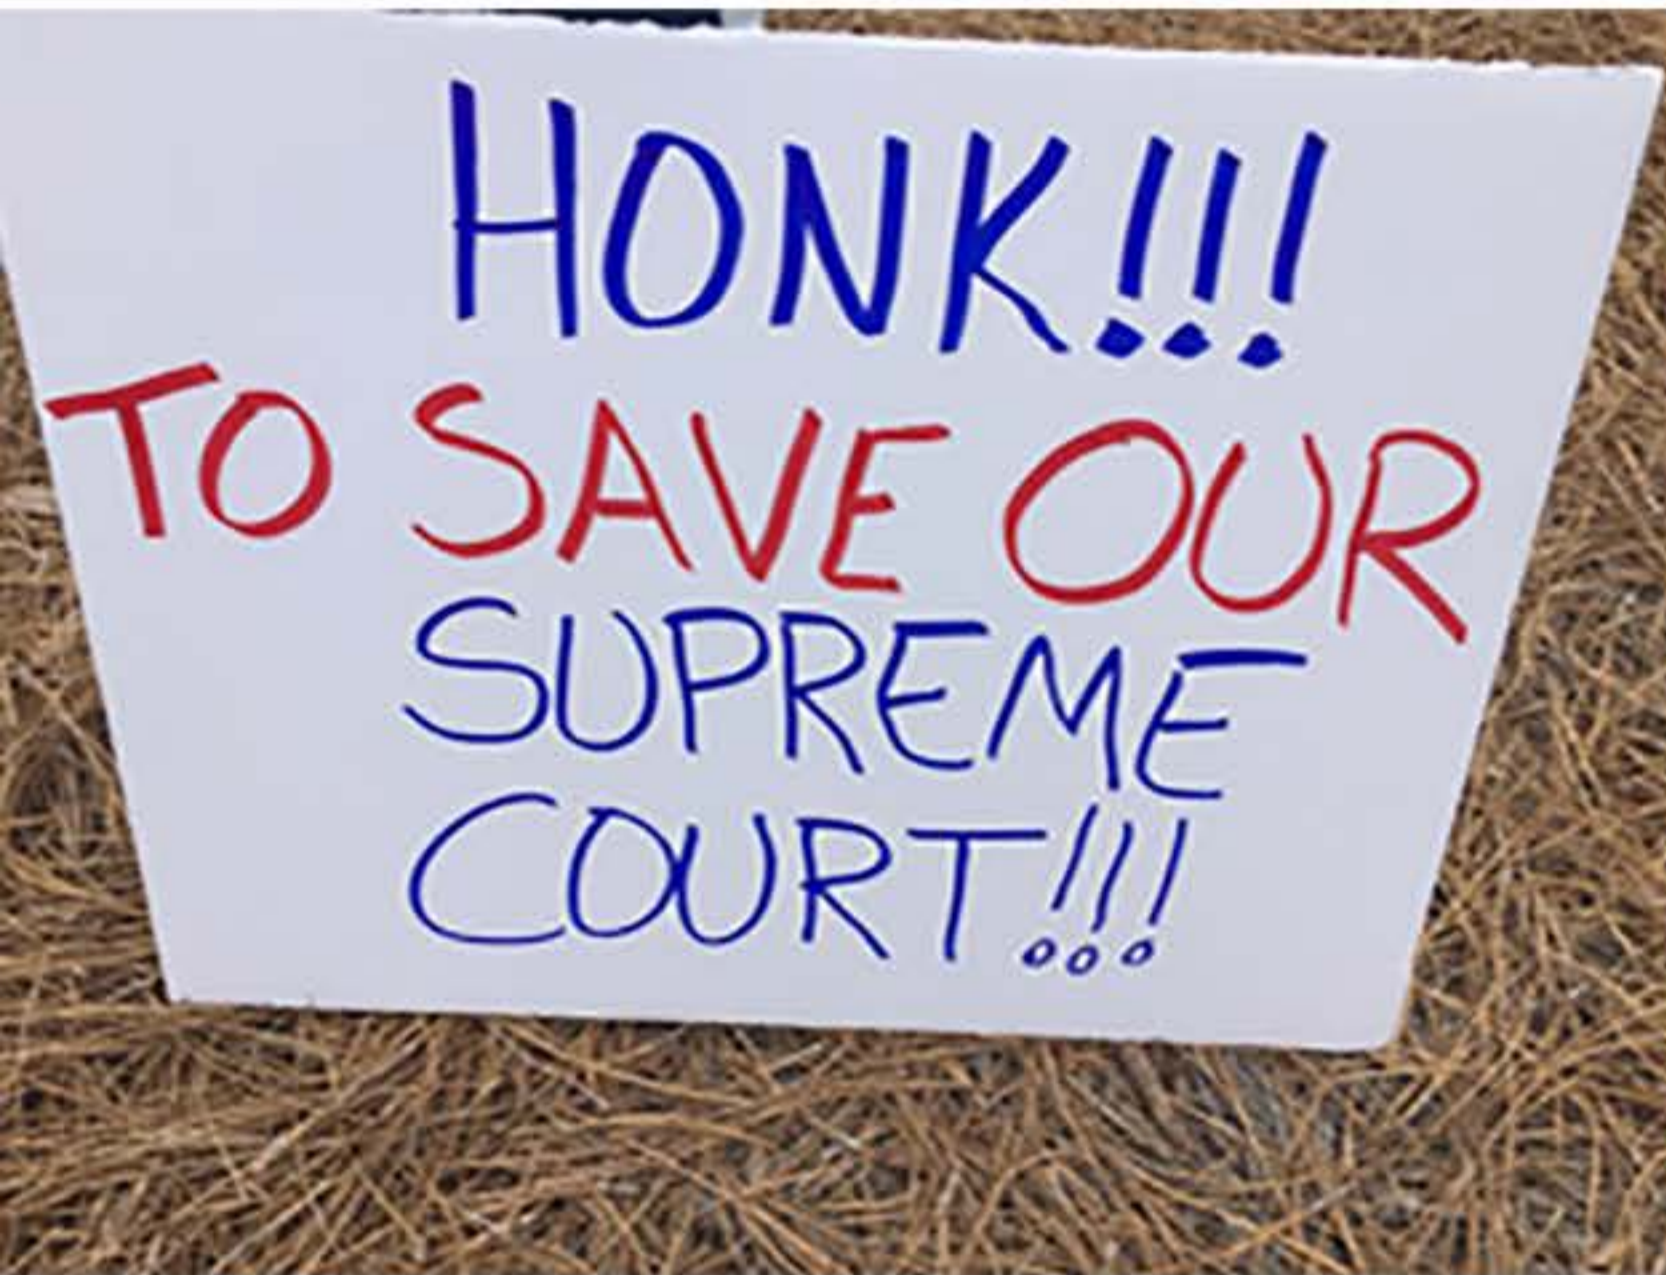 HONK!!!
TO SAVE OUR
SUPREME
COURT!!!